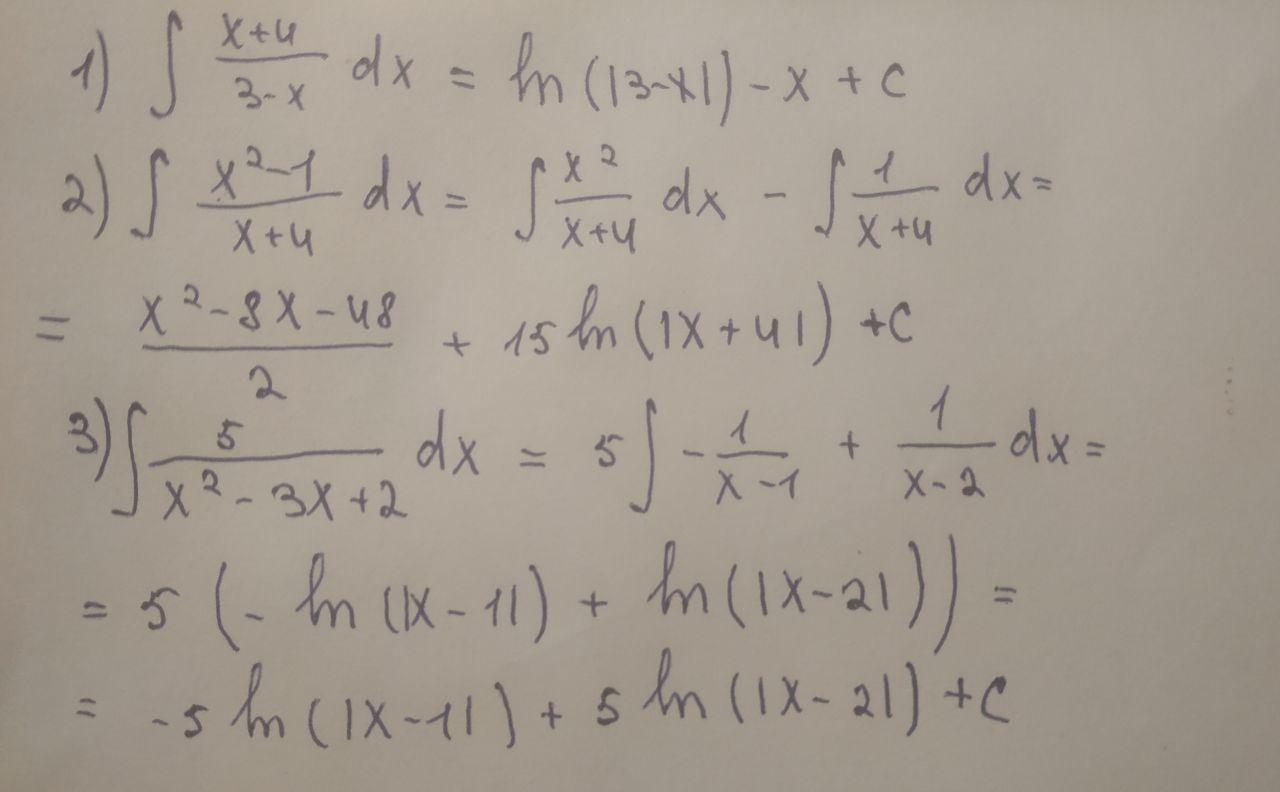 1) ∫ (x+4)/(3-x) dx = ln(|3-x|) - x + C
2) ∫ (x²-1)/(x+4) dx = ∫ x²/(x+4) dx - ∫ 1/(x+4) dx =
= (x²-8x-48)/2 + 15 ln(|x+4|) + C
3) ∫ 5/(x²-3x+2) dx = 5 ∫ - 1/(x-1) + 1/(x-2) dx =
= 5 (- ln(|x-1|) + ln(|x-2|)) =
= -5 ln(|x-1|) + 5 ln(|x-2|) + C